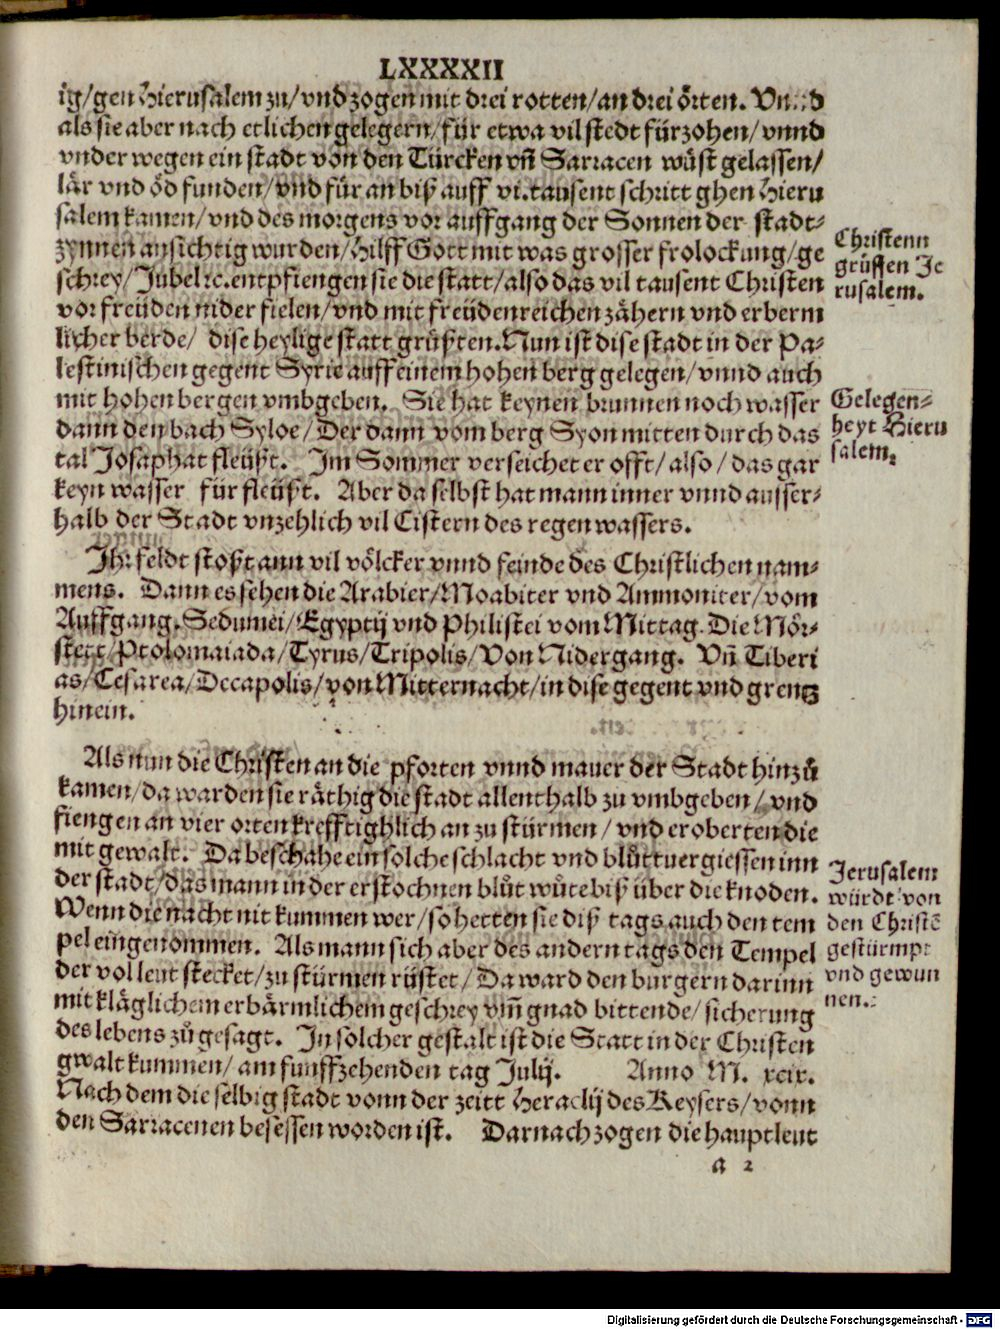 LXXXXII
ig/gen Hierusalem zu/vnd zogen mit drei rotten/an drei örten. Vnnd
als sie aber nach etlichen gelegern/für etwa vil stedt fürzohen/vnnd
vnder wegen ein stadt von den Türcken vñ Sarracen wüst gelassen/
lär vnd öd funden/vnd für an biß auff vi.tausent schritt ghen Hieru
salem kamen/vnd des morgens vor auffgang der Sonnen der stadt-
zynnen ansichtig wurden/Hilff Gott mit was grosser frolockung/ge
schrey/Jubel ꝛc.entpfiengen sie die statt/also das vil tausent Christen
vor freüden nider fielen/vnd mit freüdenreichen zähern vnd erberm
licher berde/ dise heylige statt grüßten. Nun ist dise stadt in der Pa-
lestinischen gegent Syrie auff einem hohen berg gelegen/vnnd auch
mit hohen bergen vmbgeben. Sie hat keynen brunnen noch wasser
dann den bach Syloe/Der dann vom berg Syon mitten durch das
tal Josaphat fleüßt. Im Sommer verseichet er offt/also/das gar
keyn wasser für fleüßt. Aber da selbst hat mann inner vnnd ausser-
halb der Stadt vnzehlich vil Cistern des regen wassers.
Christenn
grüssen Je
rusalem.
Gelegen-
heyt Hieru
salem.
Ihr feldt stoßt ann vil völcker vnnd feinde des Christlichen nam-
mens. Dann es sehen die Arabier/Moabiter vnd Ammoniter/vom
Auffgang. Sedumei/Egyptij vnd Philistei vom Mittag. Die Mör-
stett/Ptolomaiada/Tyrus/Tripolis/Von Nidergang. Vñ Tiberi
as/Cesarea/Decapolis/von Mitternacht/in dise gegent vnd grentz
hinein.
Als nun die Christen an die pforten vnnd mauer der Stadt hinzů
kamen/da warden sie räthig die stadt allenthalb zu vmbgeben/vnd
fiengen an vier orten krefftighlich an zu stürmen/vnd eroberten die
mit gewalt. Da beschahe ein solche schlacht vnd blůttuergiessen inn
der stadt/das mann in der erstochnen blůt wůte biß über die knoden.
Wenn die nacht nit kummen wer/so hetten sie diß tags auch den tem
pel eingenommen. Als mann sich aber des andern tags den Tempel
der vol leut stecket/zu stürmen rüstet/Da ward den burgern darinn
mit kläglichem erbärmlichem geschrey vm̃ gnad bittende/sicherung
des lebens zů gesagt. In solcher gestalt ist die Statt in der Christen
gwalt kummen/am funffzehenden tag Julij. Anno M. xcix.
Nach dem die selbig stadt vonn der zeitt Heraclij des Keysers/vonn
den Sarracenen besessen worden ist. Darnach zogen die hauptleut
Jerusalem
würdt von
den Christẽ
gestürmpt
vnd gewun
nen.
a 2
Digitalisierung gefördert durch die Deutsche Forschungsgemeinschaft - DFG